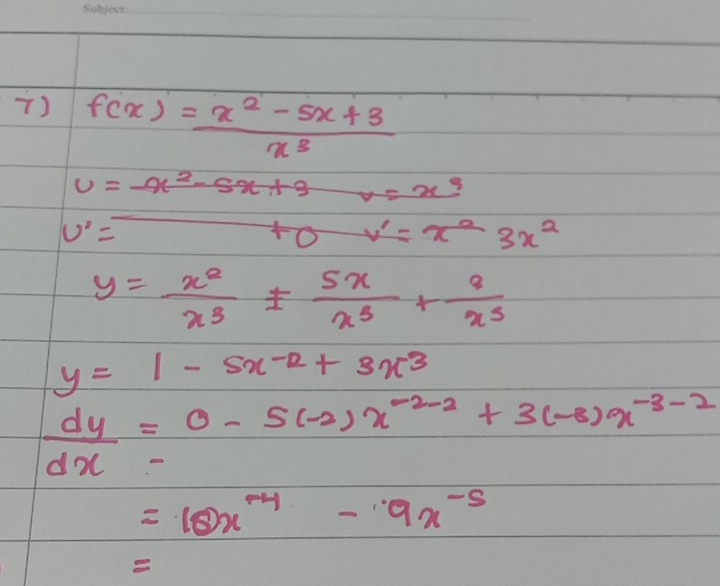 Subject:
7) f(x) = x² - 5x + 3
x³
u = x² - 5x + 3 v = x³
u' = +0 v' = x² 3x²
y = x²/x³ ± 5x/x³ + 3/x³
y = 1 - 5x⁻² + 3x³
dy/dx = 0 - 5(-2)x⁻²⁻² + 3(-3)x⁻³⁻²
-
= 10x⁻⁴ - 9x⁻⁵
=